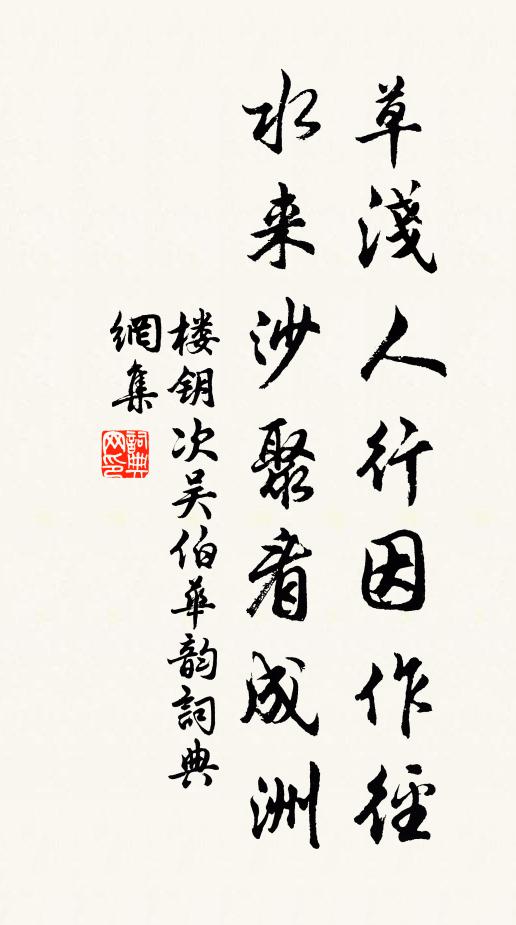 草淺人行因作徑
水来沙聚看成洲
楼钥次吴伯華韵詞典
網集
詞典
网印